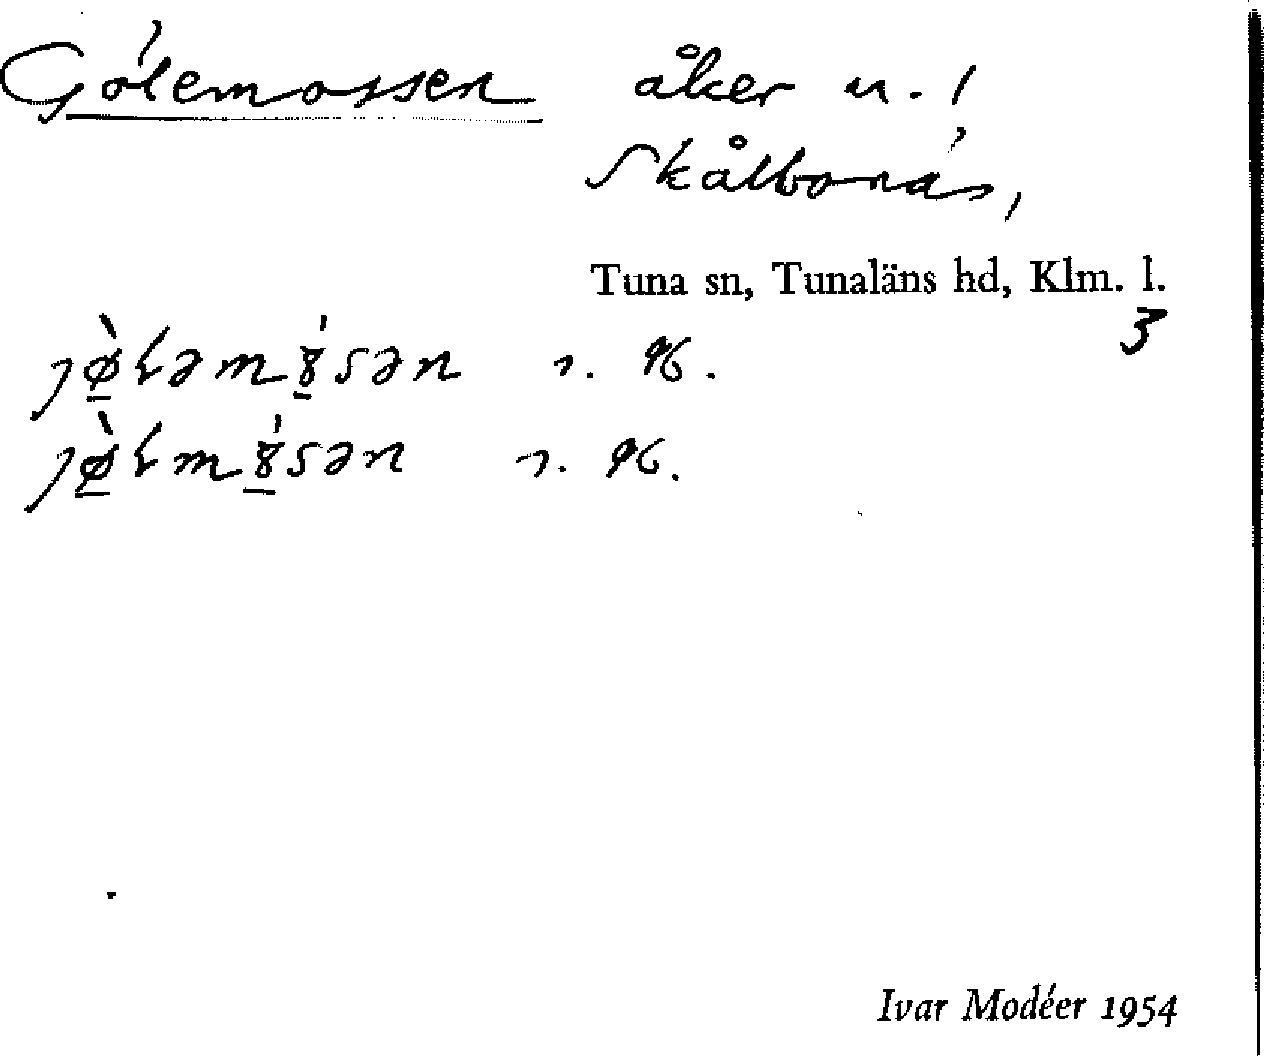 Gölemossen åker n. 1
Skålbonäs,
Tuna sn, Tunaläns hd, Klm. l.
3
jø̠̀ɫəmɞ̠́sən
jø̠̀ɫmɞ̠́sən
Ivar Modéer 1954